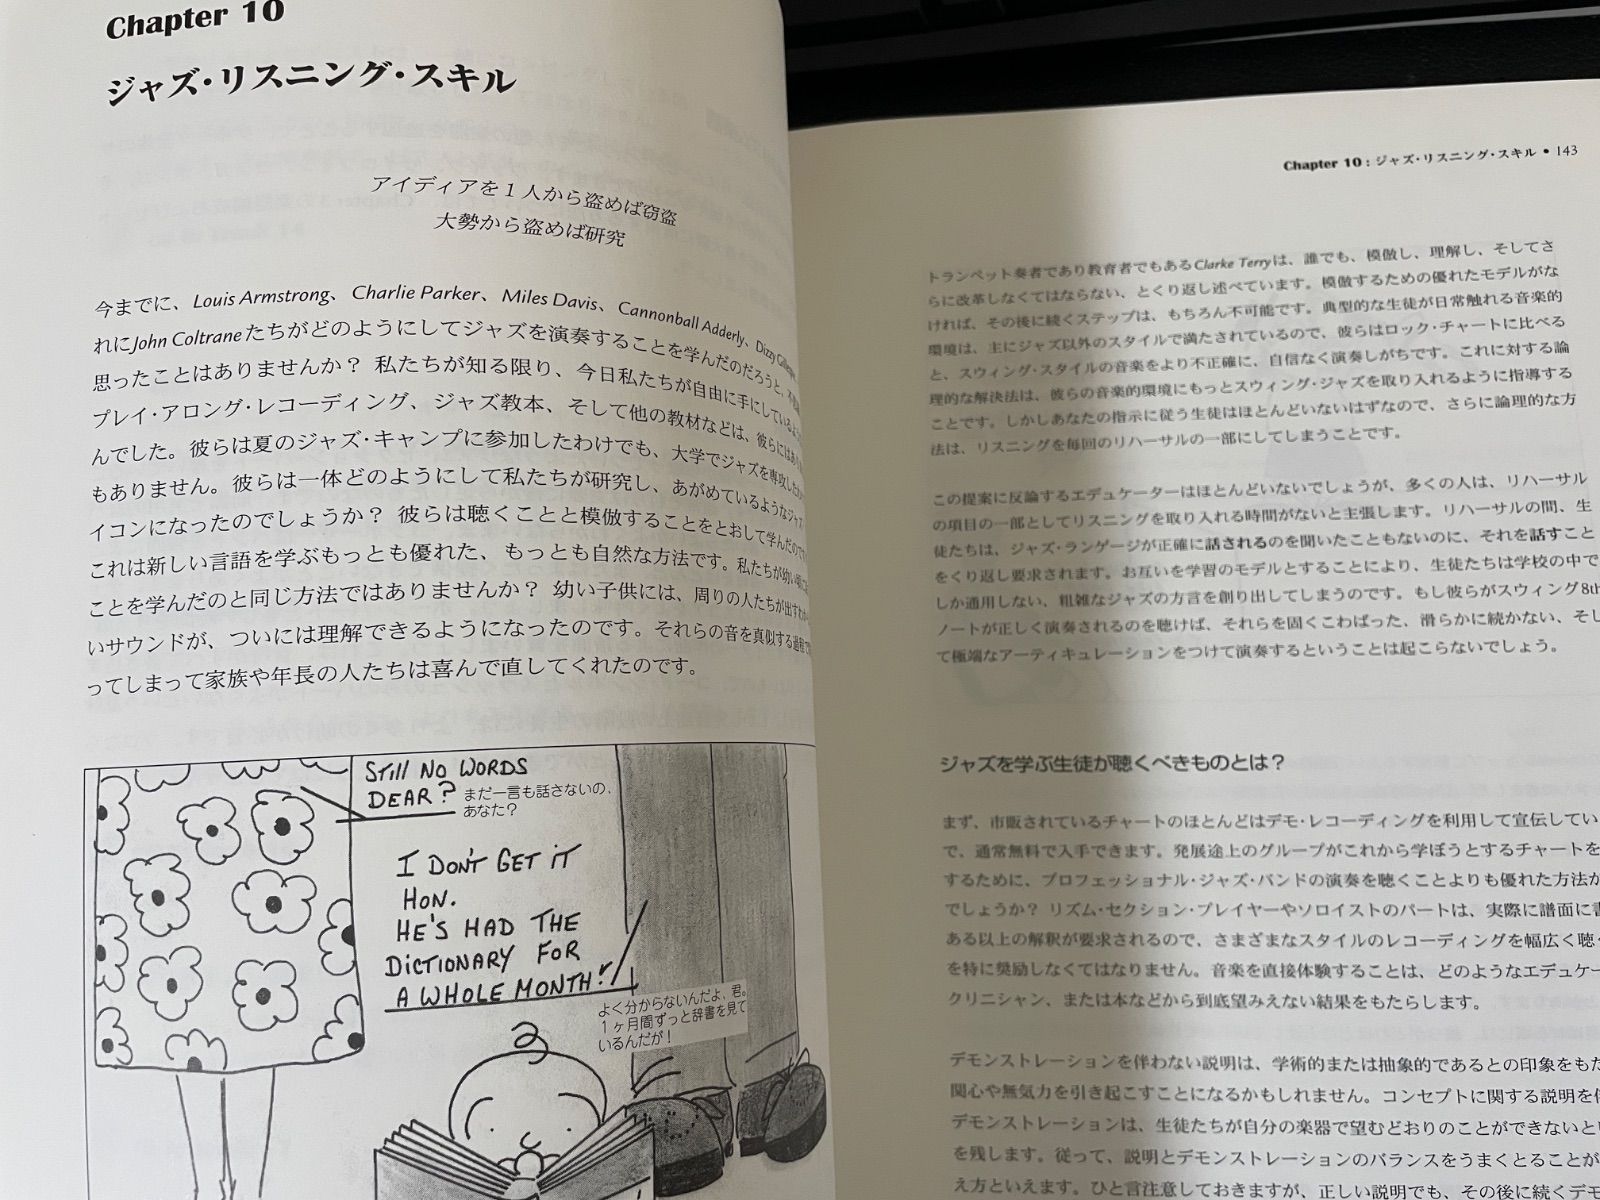 Chapter 10
ジャズ・リスニング・スキル
アイディアを1人から盗めば窃盗
大勢から盗めば研究
今までに、Louis Armstrong、Charlie Parker、Miles Davis、Cannonball Adderly、Dizzy
れにJohn Coltraneたちがどのようにしてジャズを演奏することを学んだのだろうと、
思ったことはありませんか？ 私たちが知る限り、今日私たちが自由に手にしているよう
プレイ・アロング・レコーディング、ジャズ教本、そして他の教材などは、彼らにはあり
んでした。彼らは夏のジャズ・キャンプに参加したわけでも、大学でジャズを専攻した
もありません。彼らは一体どのようにして私たちが研究し、あがめているようなジャズ・
イコンになったのでしょうか？ 彼らは聴くことと模倣することをとおして学んだのです
これは新しい言語を学ぶもっとも優れた、もっとも自然な方法です。私たちが幼い頃に
ことを学んだのと同じ方法ではありませんか？ 幼い子供には、周りの人たちが出す
いサウンドが、ついには理解できるようになったのです。それらの音を真似する過程で
ってしまって家族や年長の人たちは喜んで直してくれたのです。
STILL NO WORDS
DEAR?
まだ一言も話さないの、
あなた？
I DON'T GET IT
HON.
HE'S HAD THE
DICTIONARY FOR
A WHOLE MONTH!
よく分からないんだよ、君。
1ヶ月間ずっと辞書を見て
いるんだが！
Chapter 10 : ジャズ・リスニング・スキル • 143
トランペット奏者であり教育者でもあるClarke Terryは、誰でも、模倣し、理解し、そしてさ
らに改革しなくてはならない、とくり返し述べています。模倣するための優れたモデルがな
ければ、その後に続くステップは、もちろん不可能です。典型的な生徒が日常触れる音楽的
環境は、主にジャズ以外のスタイルで満たされているので、彼らはロック・チャートに比べる
と、スウィング・スタイルの音楽をより不正確に、自信なく演奏しがちです。これに対する論
理的な解決法は、彼らの音楽的環境にもっとスウィング・ジャズを取り入れるように指導する
ことです。しかしあなたの指示に従う生徒はほとんどいないはずなので、さらに論理的な方
法は、リスニングを毎回のリハーサルの一部にしてしまうことです。
この提案に反論するエデュケーターはほとんどいないでしょうが、多くの人は、リハーサル
の項目の一部としてリスニングを取り入れる時間がないと主張します。リハーサルの間、生
徒たちは、ジャズ・ランゲージが正確に話されるのを聞いたこともないのに、それを話すこと
をくり返し要求されます。お互いを学習のモデルとすることにより、生徒たちは学校の中で
しか通用しない、粗雑なジャズの方言を創り出してしまうのです。もし彼らがスウィング8th
ノートが正しく演奏されるのを聴けば、それらを固くこわばった、滑らかに続かない、そし
て極端なアーティキュレーションをつけて演奏するということは起こらないでしょう。
ジャズを学ぶ生徒が聴くべきものとは？
まず、市販されているチャートのほとんどはデモ・レコーディングを利用して宣伝してい
で、通常無料で入手できます。発展途上のグループがこれから学ぼうとするチャートを
するために、プロフェッショナル・ジャズ・バンドの演奏を聴くことよりも優れた方法が
でしょうか？ リズム・セクション・プレイヤーやソロイストのパートは、実際に譜面に書
ある以上の解釈が要求されるので、さまざまなスタイルのレコーディングを幅広く聴く
を特に奨励しなくてはなりません。音楽を直接体験することは、どのようなエデュケー
クリニシャン、または本などから到底望みえない結果をもたらします。
デモンストレーションを伴わない説明は、学術的または抽象的であるとの印象をもた
関心や無気力を引き起こすことになるかもしれません。コンセプトに関する説明を伴
デモンストレーションは、生徒たちが自分の楽器で望むどおりのことができないとい
を残します。従って、説明とデモンストレーションのバランスをうまくとることが
え方といえます。ひと言注意しておきますが、正しい説明でも、その後に続くデモ